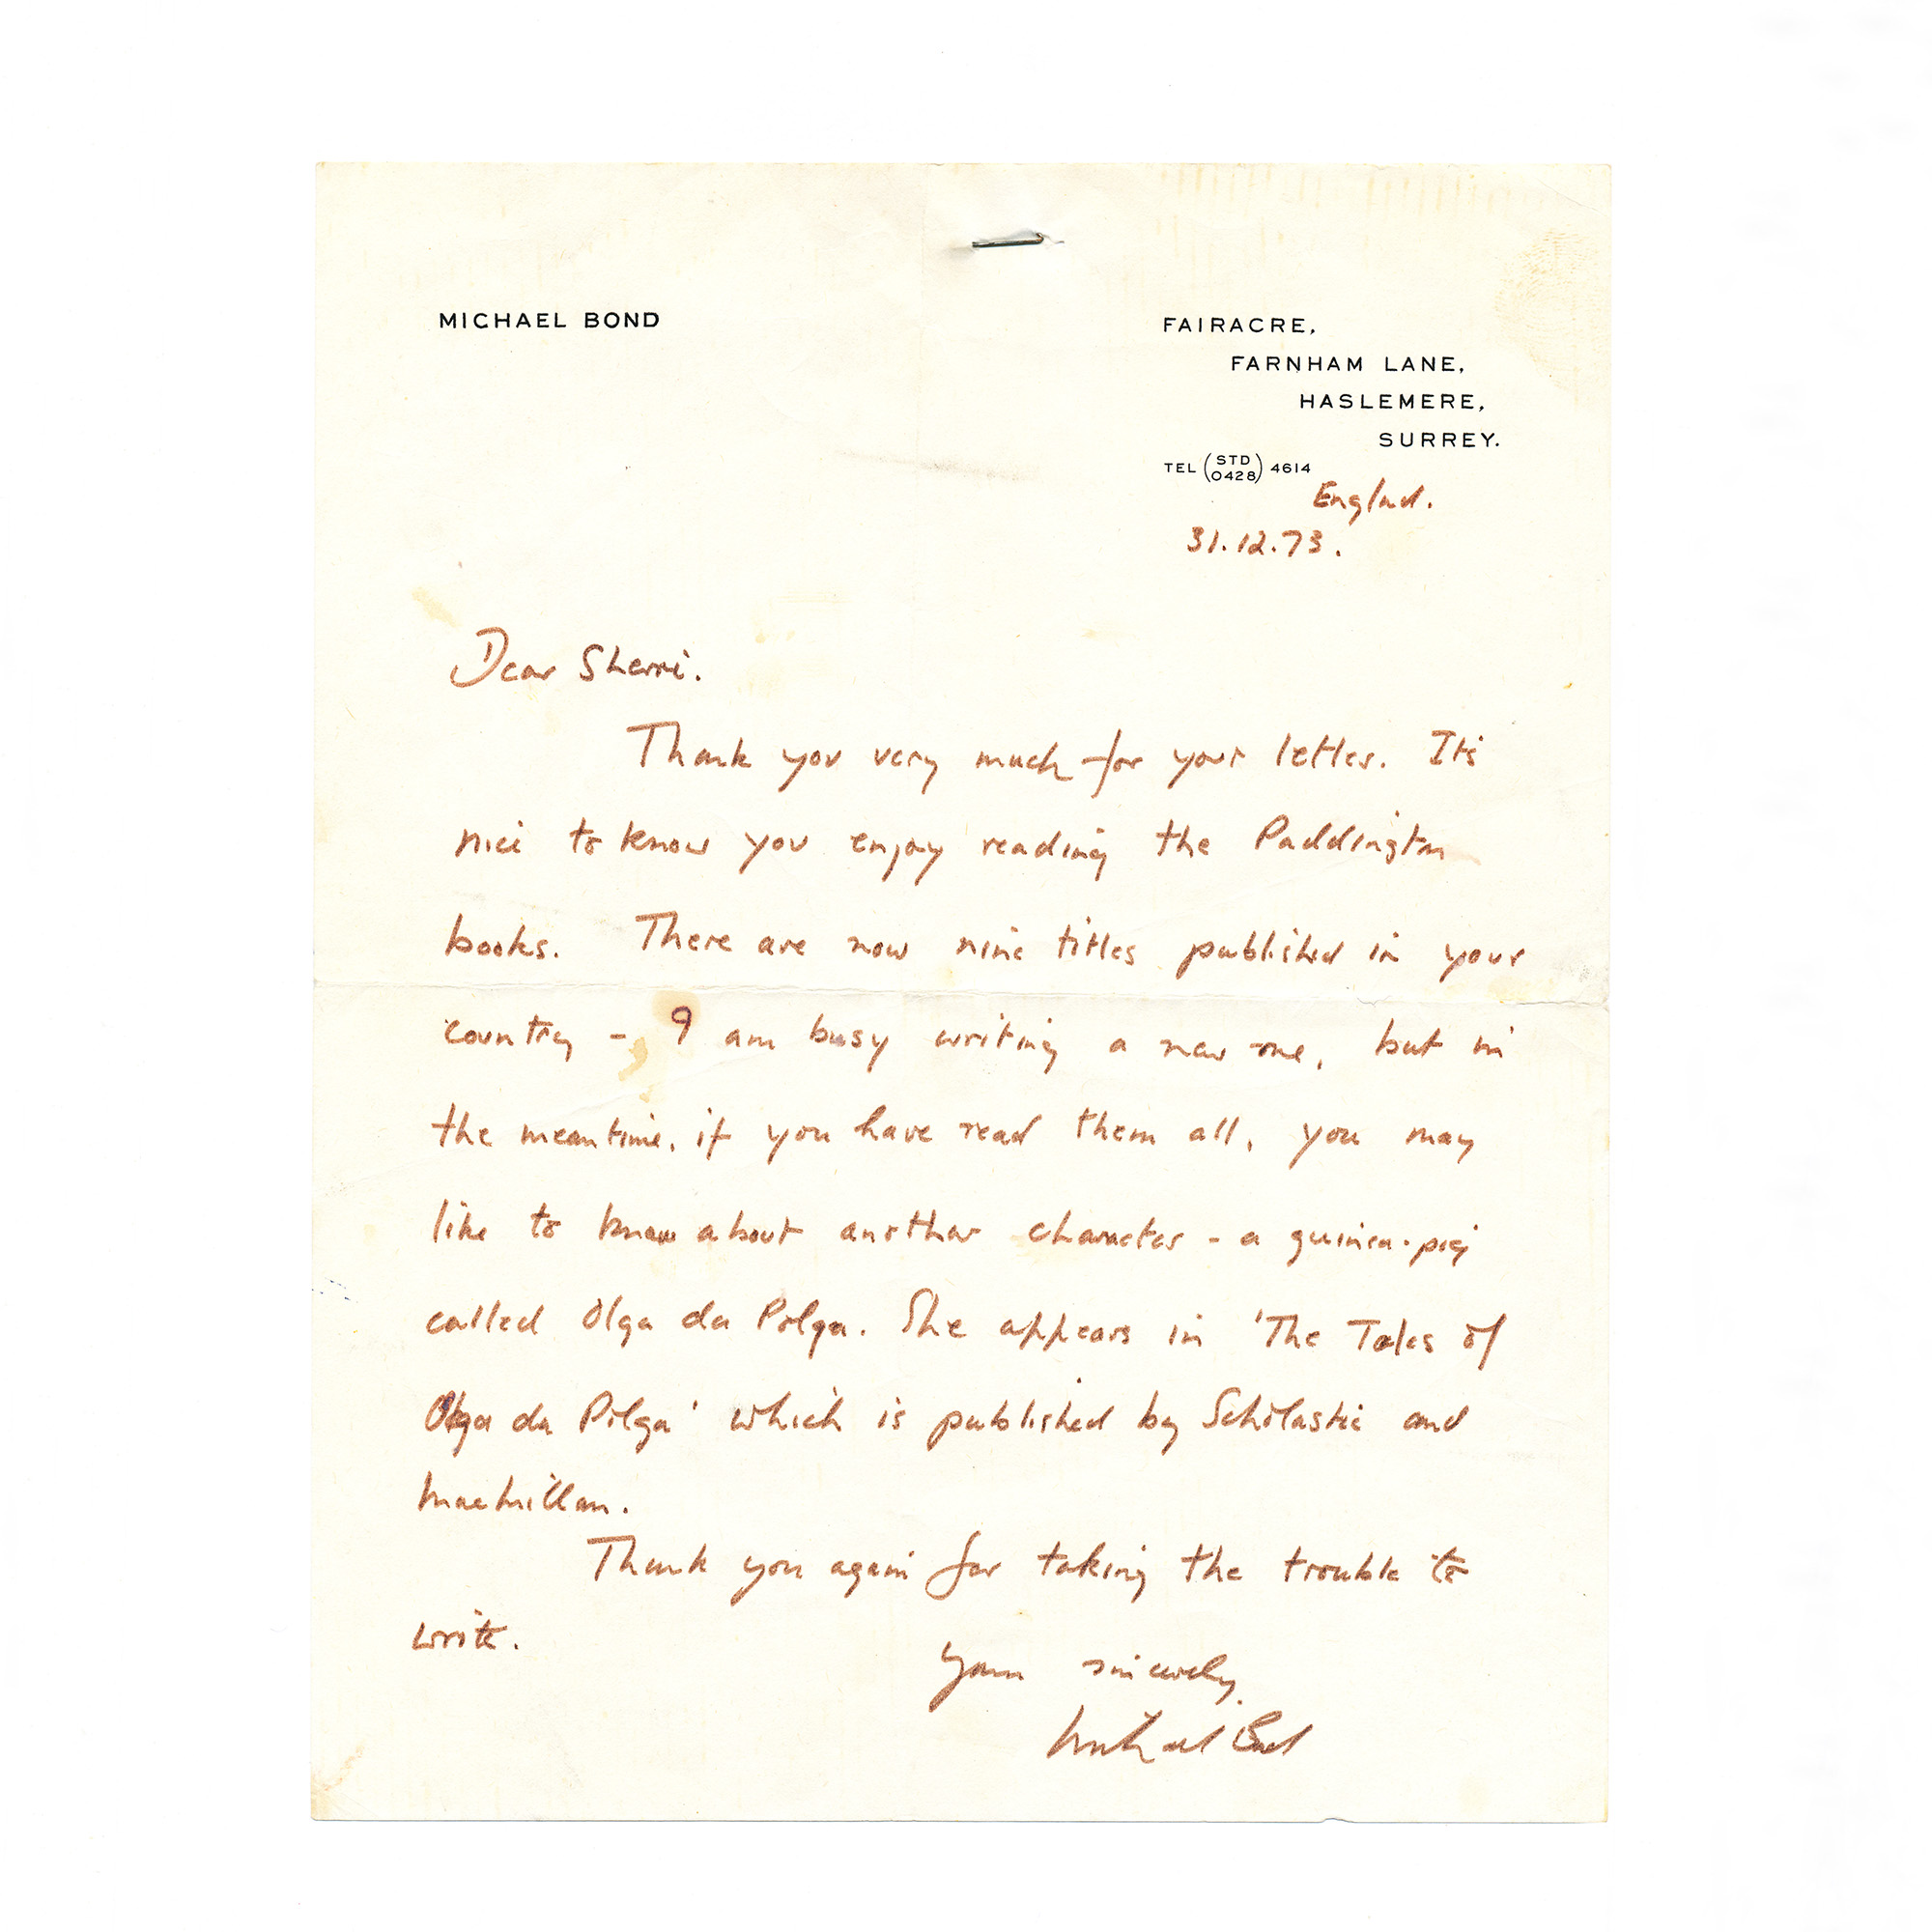 MICHAEL BOND
FAIRACRE,
FARNHAM LANE,
HASLEMERE,
SURREY.
TEL (STD 0428) 4614
England.
31.12.73.
Dear Sherri.
Thank you very much for your letter. It's
nice to know you enjoy reading the Paddington
books. There are now nine titles published in your
country - I am busy writing a new one, but in
the meantime, if you have read them all, you may
like to know about another character - a guinea-pig
called Olga da Polga. She appears in 'The Tales of
Olga da Polga' which is published by Scholastic and
Macmillan.
Thank you again for taking the trouble to
write.
Yours sincerely,
Michael Bond